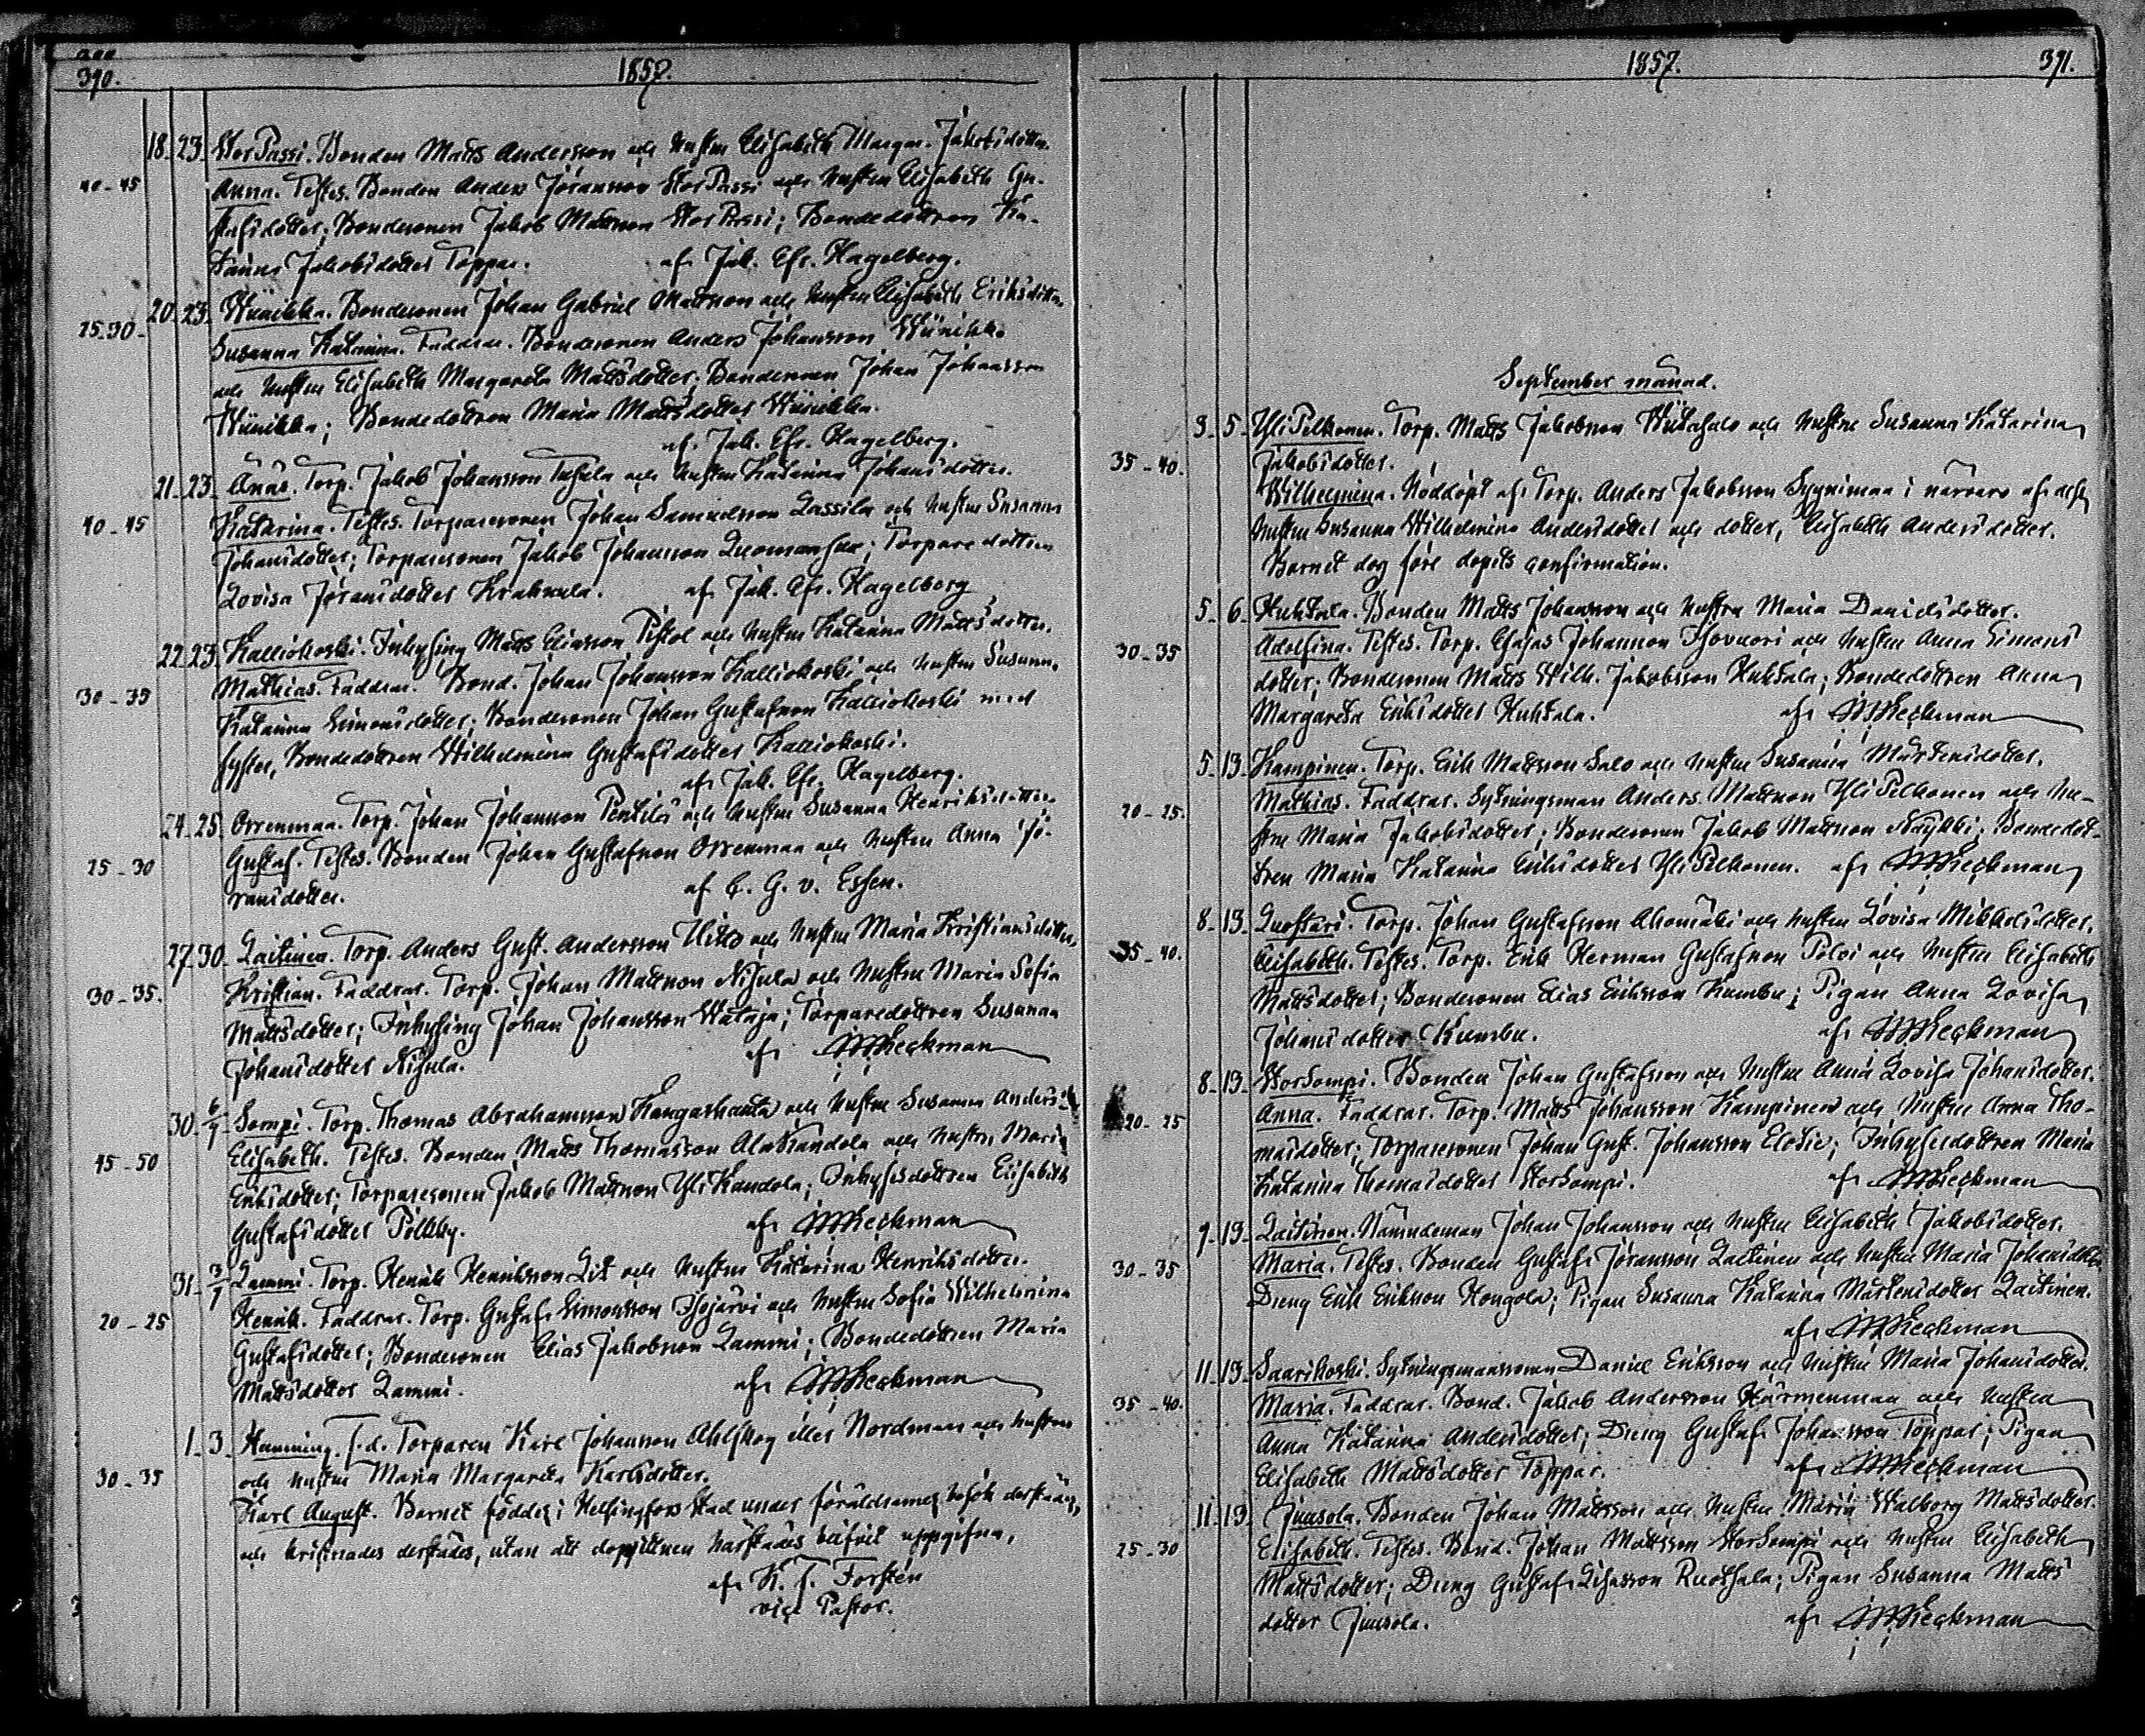 390.
1857.
18. 23. StorPassi. Bonden Matts Andersson och hustru Elisabeth Margar. Jakobsdotter.
40-45 Anna. Testes. Bonden Anders Jöransson StorPassi och hustru Elisabeth Gu-
stafsdotter; Bondesonen Jakob Mattsson StorPassi; Bondedottren Ka-
tarina Jakobsdotter Toppar. af Jak. Efr. Hagelberg.
20. 23. Wünikka. Bondesonen Johan Gabriel Mattsson och hustru Elisabeth Eriksdotter.
25-30- Susanna Katarina. Faddrar. Bondesonen Anders Johansson Wünikka
och hustru Elisabeth Margareta Mattsdotter; Bondesonen Johan Johansson
Wünikka; Bondedottren Maria Mattsdotter Wünikka.
af Jak. Efr. Hagelberg.
21. 23. Ånäs. Torp. Jakob Johansson och hustru Katarina Johansdotter.
40-45 Katarina. Testes. Torparesonen Johan Samuelsson Lassila och hustru Susanna
Johansdotter; Torparesonen Jakob Johansson; Torparedottren
Lovisa Jöransdotter Krakula. af Jak. Efr. Hagelberg
22. 23. Kalliokoski. Inhysing Matts Eliasson Pistol och hustru Katarina Mattsdotter.
30-35 Mathias. Faddrar. Bond. Johan Johansson Kalliokoski och hustru Susanna
Katarina Simonsdotter; Bondesonen Johan Gustafsson Kalliokoski med
syster, Bondedottren Wilhelmina Gustafsdotter Kalliokoski.
af Jak. Efr. Hagelberg.
24. 25. Orrenmaa. Torp. Johan Johansson Pentilä och hustru Susanna Henriksdotter.
25-30 Gustaf. Testes. Bonden Johan Gustafsson Orrenmaa och hustru Anna Jö-
ransdotter. af C. G. v. Essen.
27. 30. Laitinen. Torp. Anders Gust. Andersson och hustru Maria Kristiansdotter.
30-35. Kristian. Faddrar. Torp. Johan Mattsson Nisula och hustru Maria Sofia
Mattsdotter; Inhysing Johan Johansson Wataja; Torparedottren Susanna
Johansdotter Nisula. af Heckman
30. 6/9 Sompi. Torp. Thomas Abrahamsson Kangashauta och hustru Susanna Anders
45-50 Elisabeth. Testes. Bonden Matts Thomasson AlaKandola och hustru Maria
Eriksdotter; Torparesonen Jakob Mattsson YliKandola; Inhysesdottren Elisabeth
Gustafsdotter Pölkky. af Heckman
31. 3/9 Lammi. Torp. Henrik Henriksson och hustru Katarina Henriksdotter.
20-25 Henrik. Faddrar. Torp. Gustaf Simonsson Isojärvi och hustru Sofia Wilhelmina
Gustafsdotter; Bondesonen Elias Jakobsson Lammi; Bondedottren Maria
Mattsdotter Lammi. af Heckman
1. 3. Hemming. f.d. Torparen Karl Johansson Ahlskog eller Nordman och hustrun
30-35 och hustru Maria Margareta Karlsdotter.
Karl August. Barnet föddes i Helsingfors stad under föräldrarnes besök derstädes,
och kristnades derstädes, utan att dopvittnen härstädes blifvit uppgifna,
af K. J. Forstén
vice Pastor.
1857.
391.
September månad.
3. 5. YliPelkonen. Torp. Matts Jakobsson Wütasalo och hustru Susanna Katarina
35-40. Jakobsdotter.
Wilhelmina. Nöddöpt af Torp. Anders Jakobsson Syynimaa i närvaro af dess
hustru Susanna Wilhelmina Andersdotter och dotter, Elisabeth Andersdotter.
Barnet dog före dopets confirmation.
5. 6. Huhtala. Bonden Matts Johansson och hustru Maria Danielsdotter.
30-35 Adolfina. Testes. Torp. Esajas Johansson Isovuori och hustru Anna Simons
dotter; Bondesonen Matts Wilh. Jakobsson Huhtala; Bondedottren Anna
Margareta Eriksdotter Huhtala. af Heckman
5. 13. Kampinen. Torp. Erik Mattsson Salo och hustru Susanna Mårtensdotter.
20-25. Mathias. Faddrar. Sytningsman Anders Mattsson YliPelkonen och hu-
stru Maria Jakobsdotter; Bondesonen Jakob Mattsson Näykki; Bondedot-
tren Maria Katarina Eriksdotter YliPelkonen. af Heckman
8. 13. Luostari. Torp. Johan Gustafsson Ahomäki och hustru Lovisa Mikkelsdotter.
35-40. Elisabeth. Testes. Torp. Erik Herman Gustafsson Polvi och hustru Elisabeth
Mattsdotter; Bondesonen Elias Eriksson Kumbu; Pigan Anna Lovisa
Johansdotter Kumbu. af Heckman
8. 13. StorSompi. Bonden Johan Gustafsson och hustru Anna Lovisa Johansdotter.
20-25 Anna. Faddrar. Torp. Matts Johansson Kampinen och hustru Anna Tho-
masdotter; Torparesonen Johan Gust. Johansson; Inhysesdottren Maria
Katarina Thomasdotter StorSompi. af Heckman
9. 13. Laitinen. Nämndeman Johan Johansson och hustru Elisabeth Jakobsdotter.
30-35 Maria. Testes. Bonden Gustaf Jöransson Laitinen och hustru Maria Johansdotter.
Dreng Erik Eriksson Hongola; Pigan Susanna Katarina Mårtensdotter Laitinen.
af Heckman
11. 13. Saarikoski. Sytningsmanssonen Daniel Eriksson och hustru Maria Johansdotter.
35-40. Maria. Faddrar. Bond. Jakob Andersson Härmenmaa och hustru
Anna Katarina Andersdotter; Dreng Gustaf Johansson Toppar; Pigan
Elisabeth Mattsdotter Toppar. af Heckman
11. 13. Juusola. Bonden Johan Mattsson och hustru Maria Walborg Mattsdotter.
25-30 Elisabeth. Testes. Bond. Johan Mattsson StorSompi och hustru Elisabeth
Mattsdotter; Dreng Gustaf Ruotsala; Pigan Susanna Matts
dotter Juusola. af Heckman